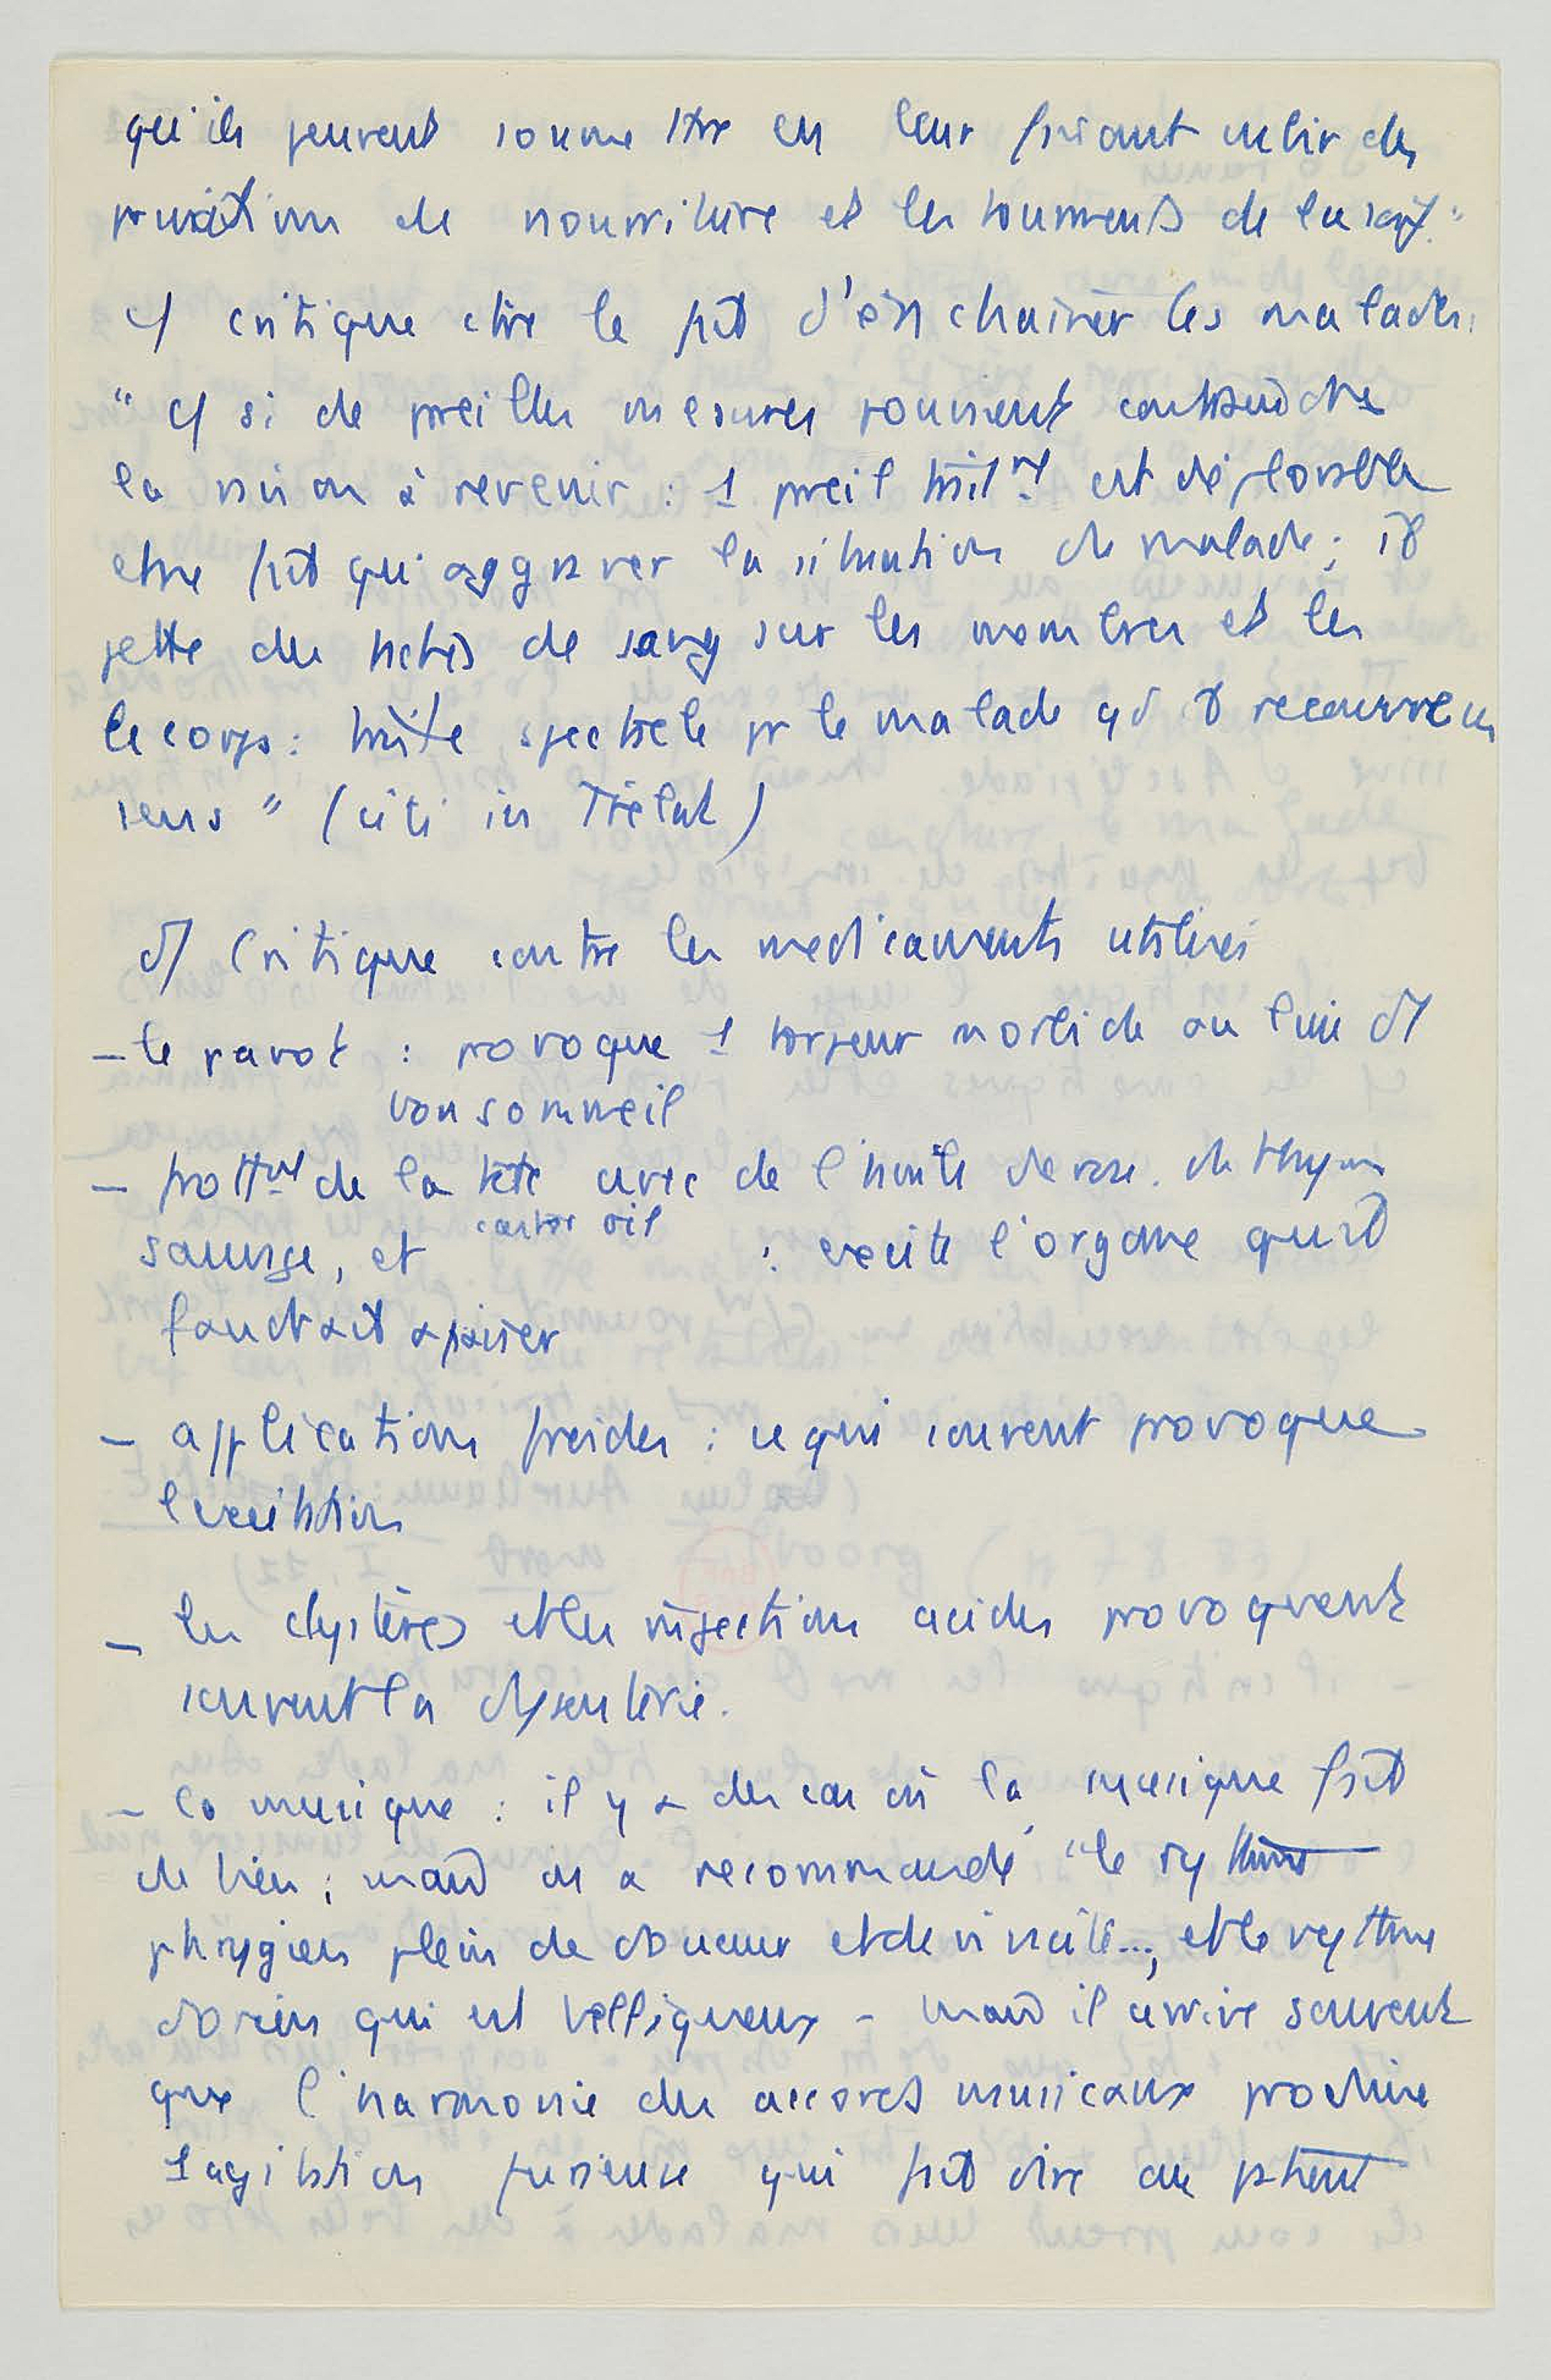 qu'ils peuvent soumettre en leur faisant subir des
privations de nourriture et les tourments de la soif."
c/ critique ctre le fait d'enchainer les malades.
" c/ si de pareilles mesures pouvaient contraindre
la raison à revenir : 1 pareil trait^mt est déplorable
et ne fait qu'aggraver la situation du malade; il
jette des de sang sur les membres et les
le corps : triste spectacle pr le malade qd il recouvre ses
sens " (cité in Trélat)
d/ Critique contre les medicaments utilisés
- le pavot : provoque 1 torpeur morbide au lieu d'1
bon sommeil
- frott^mt de la tête avec de l'huile de rose. de thym
sauvage, et castor oil : excite l'organe qu'il
faudrait apaiser
- applications froides : ce qui souvent provoque
l'excitation
- les clystères et les injections acides provoquent
souvent la dysenterie.
- la musique : il y a des cas où la musique fait
du bien ; mais on a recommandé "le rythme
phrygien plein de douceur et de vivacité..., et le rythme
dorien qui est belliqueux - mais il arrive souvent
que l'harmonie des accords musicaux produise
1 agitation furieuse qui fait dire au patient